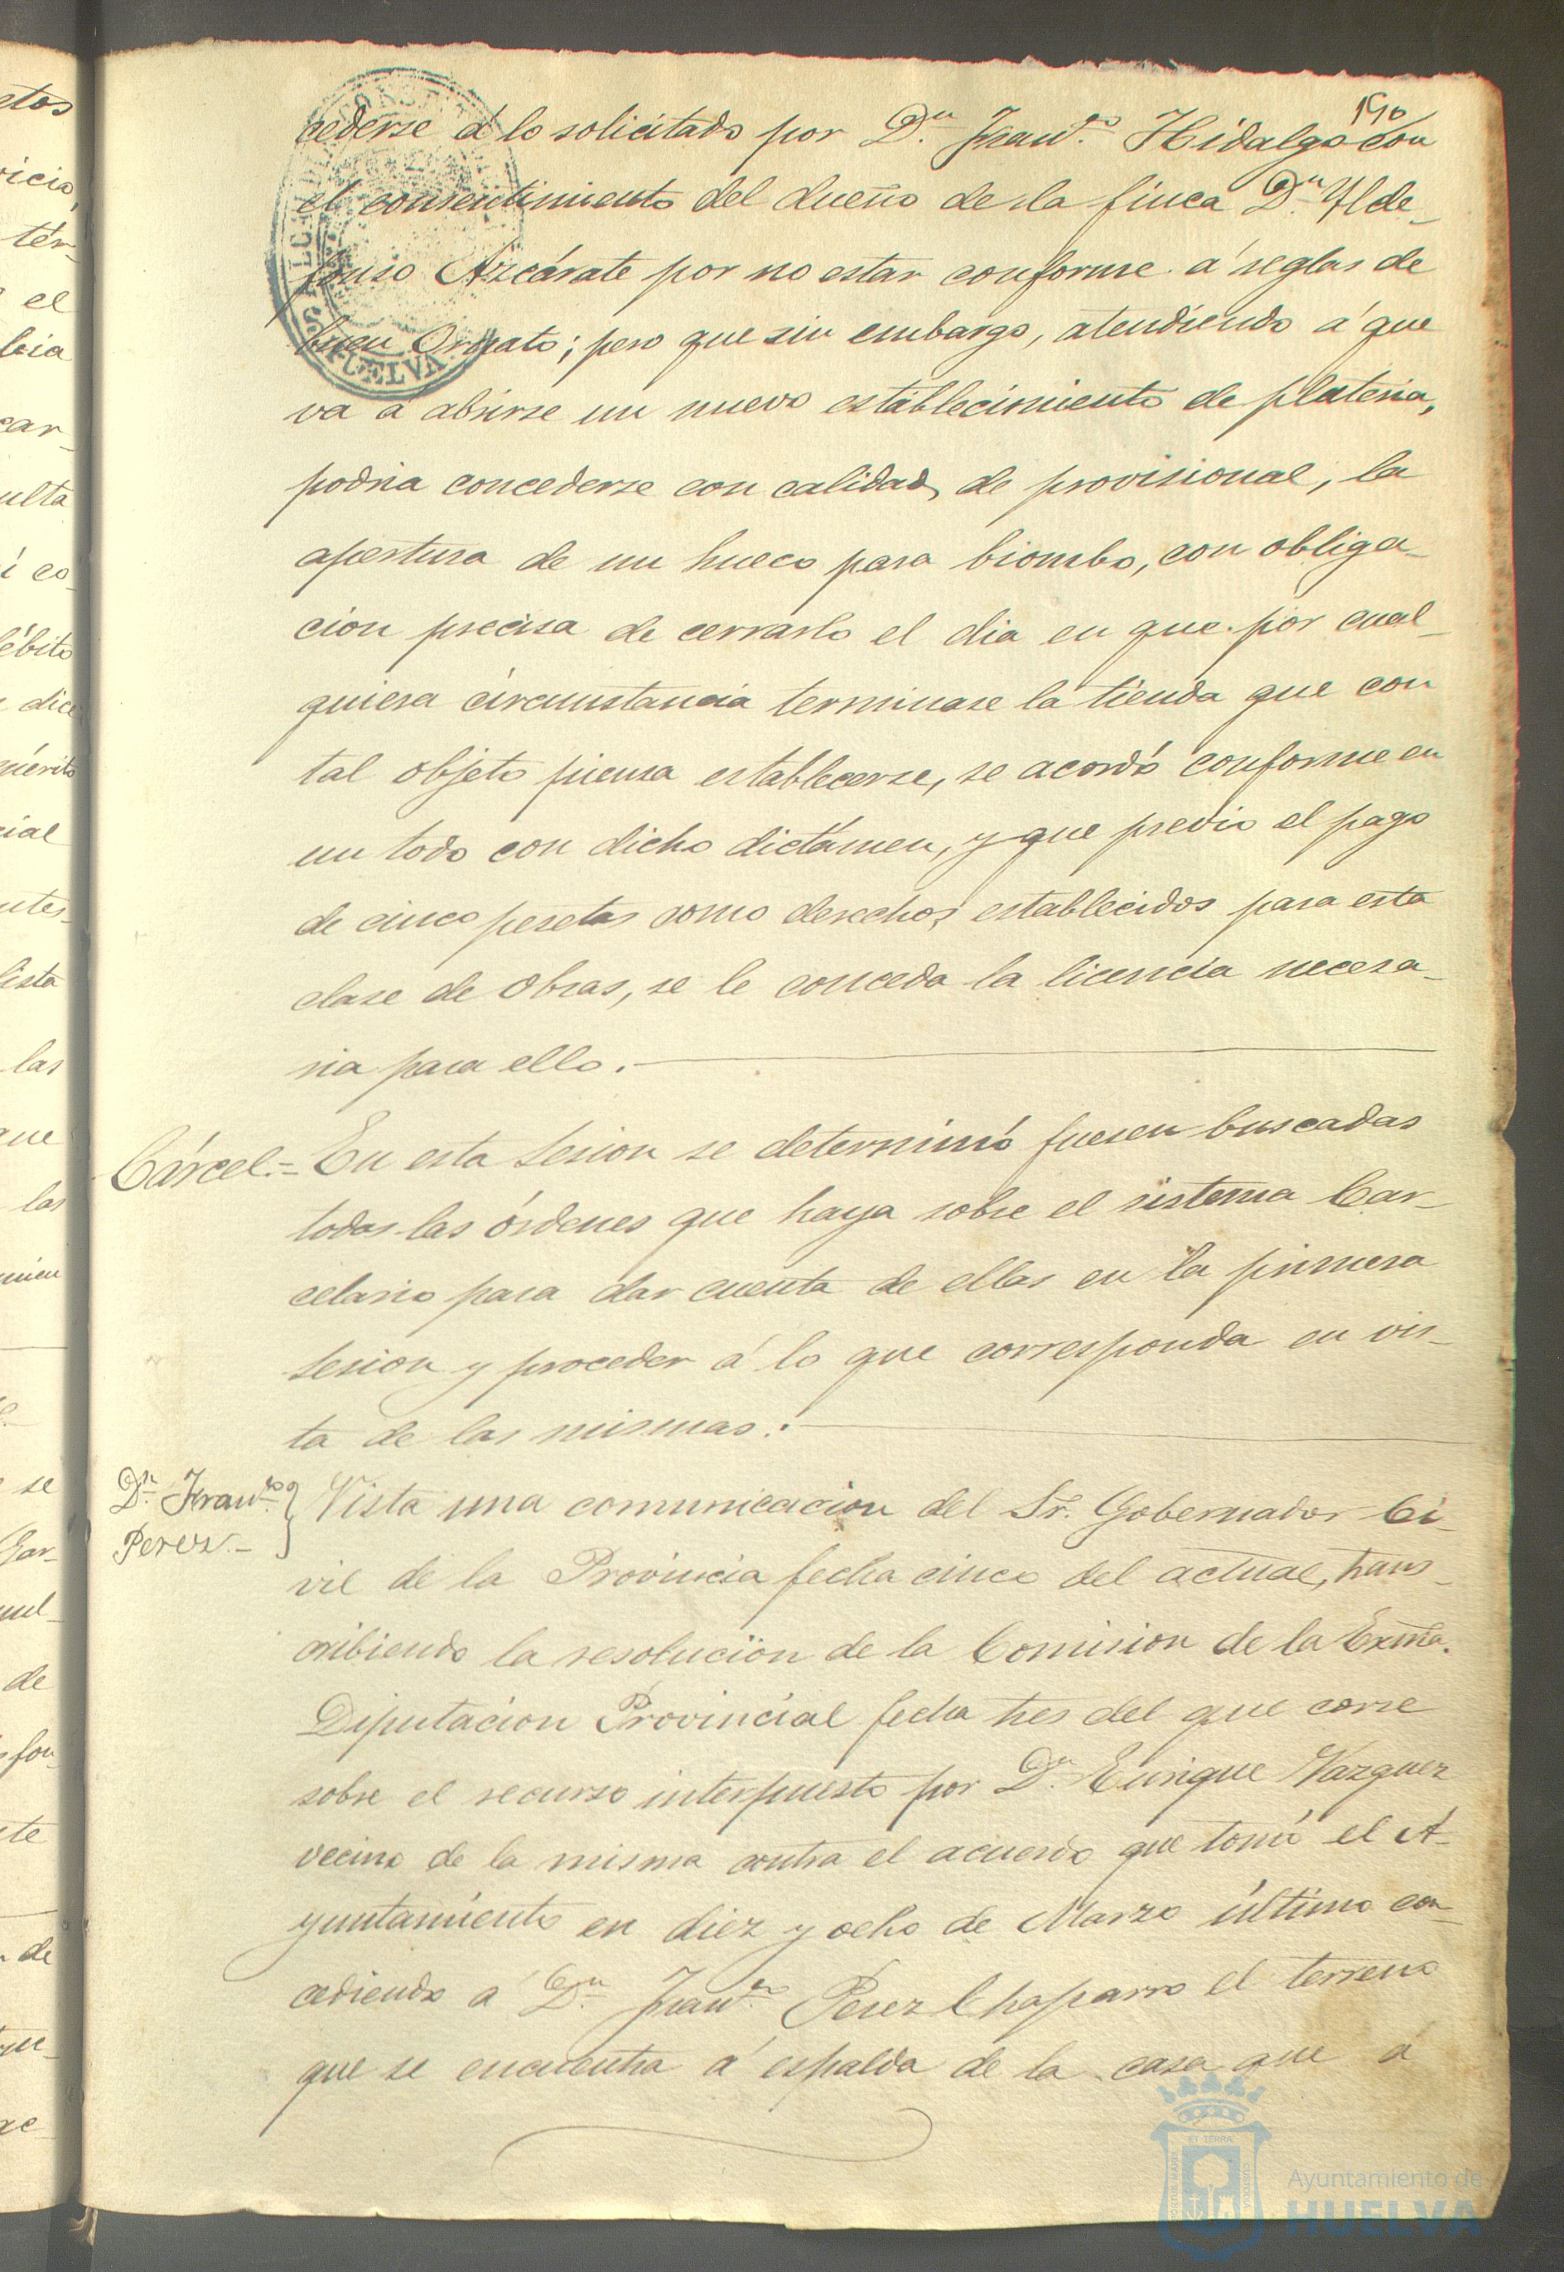 190
cederse á lo solicitado por Dn. Franco. Hidalgo con
el consentimiento del dueño de la finca Dn. Ylde-
fonso Azcárate por no estar conforme á reglas de
buen Ornato; pero que sin embargo, atendiendo á que
va á abrirse un nuevo establecimiento de plateria,
podria concederse con calidad de provisional, la
apertura de un hueco para biombo, con obliga-
cion precisa de cerrarlo el dia en que por cual-
quiera circunstancia terminase la tienda que con
tal objeto piensa establecerse, se acordó conforme en
un todo con dicho dictámen, y que previo el pago
de cinco pesetas como derechos establecidos para esta
clase de obras, se le conceda la licencia necesa-
ria para ello.
Cárcel.= En esta sesion se determinó fuesen buscadas
todas las órdenes que haya sobre el sistema Car-
celario para dar cuenta de ellas en la primera
sesion y proceder á lo que corresponda en vis-
ta de las mismas.
Dn. Franco.
Perez.-
Vista una comunicacion del Sr. Gobernador Ci-
vil de la Provincia fecha cinco del actual, trans-
cribiendo la resolucion de la Comision de la Exma.
Diputacion Provincial fecha tres del que corre
sobre el recurso interpuesto por Dn. Enrique Vazquez
vecino de la misma contra el acuerdo que tomó el A-
yuntamiento en diez y ocho de Marzo último con-
cediendo á Dn. Franco. Perez Chaparro el terreno
que se encuentra á espalda de la casa que á
HUELVA
Ayuntamiento de
HUELVA
etos
icio,
tér-
el
car-
ulta
i co-
ébito
dice
mérito
cial
lista
las
que
las
se
Gar-
de
de